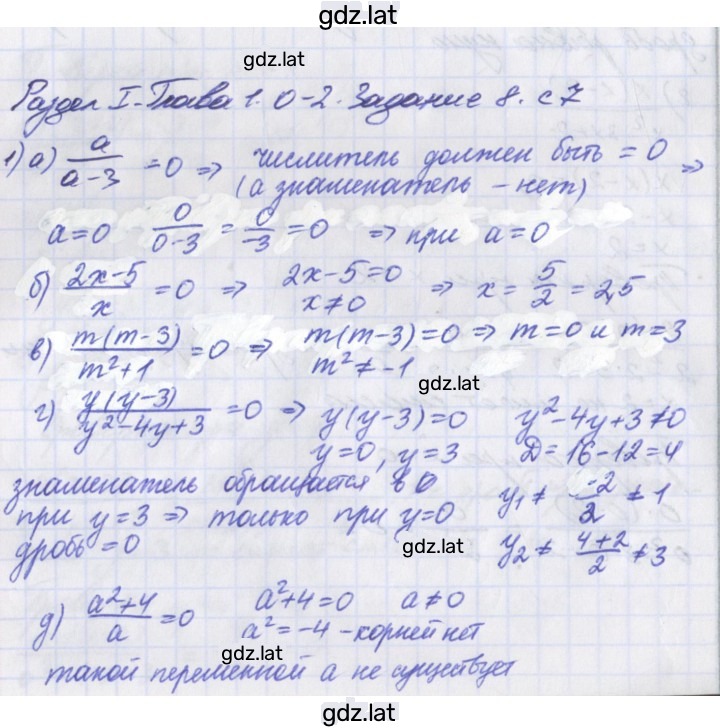 gdz.lat
gdz.lat
Раздел I-Глава 1. О-2. Задание 8. с 7
1) а) a/(a-3) = 0 ⇒ числитель должен быть = 0 ⇒
(а знаменатель - нет)
a=0 0/(0-3) = 0/-3 = 0 ⇒ при a=0
б) (2x-5)/x = 0 ⇒ 2x-5=0 ⇒ x = 5/2 = 2,5
x≠0
в) m(m-3)/(m²+1) = 0 ⇒ m(m-3)=0 ⇒ m=0 и m=3
m² ≠ -1
gdz.lat
г) y(y-3)/(y²-4y+3) = 0 ⇒ y(y-3)=0 y²-4y+3≠0
y=0, y=3 D=16-12=4
знаменатель обращается в 0 y₁ ≠ -2/2 ≠ 1
при y=3 ⇒ только при y=0
дробь =0 gdz.lat y₂ ≠ (4+2)/2 ≠ 3
д) (a²+4)/a = 0 a²+4=0 a≠0
a²=-4 - корней нет
gdz.lat
такой переменной a не существует
gdz.lat